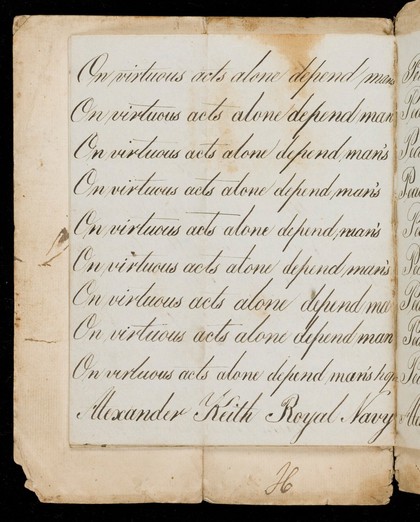 On virtuous acts alone depend man
On virtuous acts alone depend man
On virtuous acts alone depend man's
On virtuous acts alone depend man's
On virtuous acts alone depend man's
On virtuous acts alone depend man's
On virtuous acts alone depend ma
On virtuous acts alone depend man
On virtuous acts alone depend man's hop
Alexander Keith Royal Navy